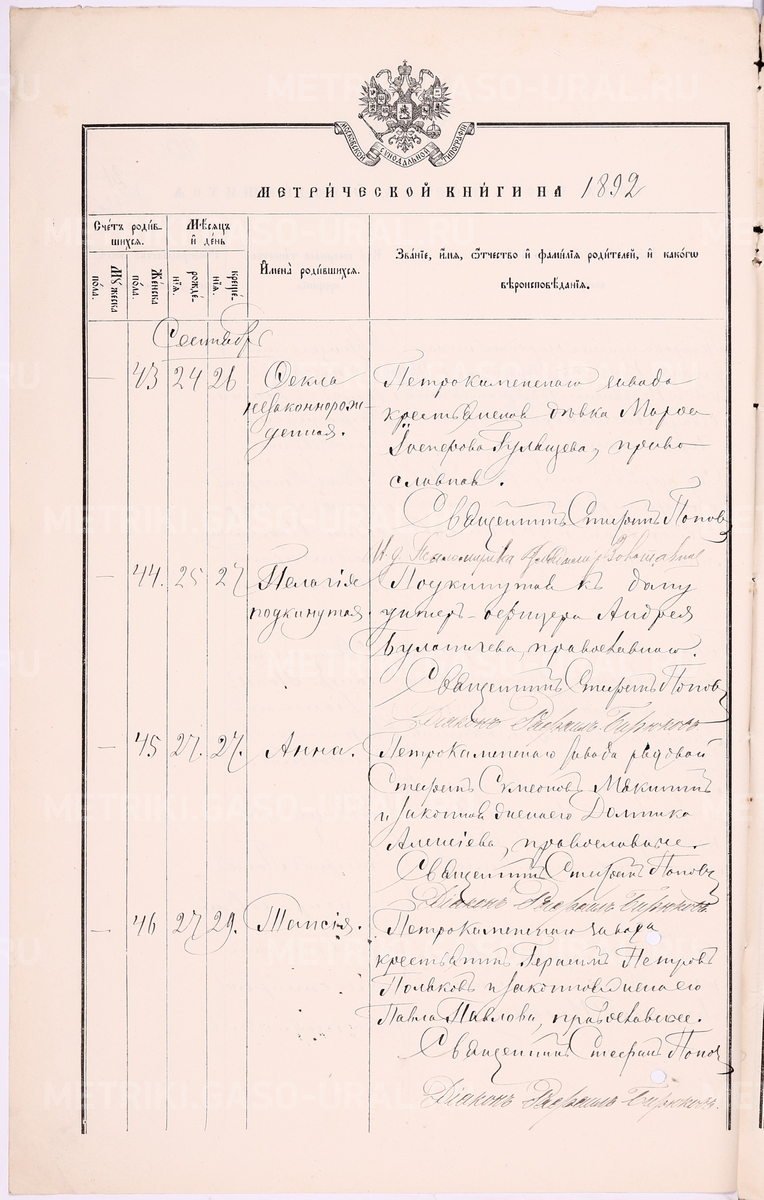 METRIKI.GASO-URAL.RU
МОСКОВСКОЙ СѴНОДАЛЬНОЙ ТИПОГРАФІИ
МЕТРИ́ЧЕСКОЙ КНИ́ГИ НА 1892
Сче́тъ роди́вшихся.
Мѣ́сяцъ и҆ де́нь
И҆мена̀ роди́вшихся.
Зва́ніе, и҆́мя, ѻ҆́тчество и҆ фами́лія роди́телей, и҆ како́гѡ вѣроисповѣ́данія.
Мꙋжеска по́ла.
Же́нска по́ла.
рожде́нія.
креще́нія.
Сентябрь
— 43 24 26 Ѳекла
незаконнорож-
денная.
Петрокаменскаго завода
крестьянская дѣвка Марѳа
православная.
Священникъ Стефанъ Попов
— 44. 25 27 Пелагія
подкинутая
Подкинутая къ дому
унтеръ-офицера Андрея
православнаго.
Священникъ Стефанъ Попов
Діаконъ Бирюковъ
— 45 27. 27. Анна.
Петрокаменскаго завода рядовой
Стефанъ Симеоновъ
и законная жена его Домника
Алексіева, православные.
Священникъ Стефанъ Поповъ
Діаконъ Бирюковъ.
— 46 27 29. Таисія.
Петрокаменскаго завода
крестьянинъ Герасимъ Петровъ
Поляковъ и законная жена его
Павла Павлова, православные.
Священникъ Стефанъ Попов
Діаконъ Бирюковъ.